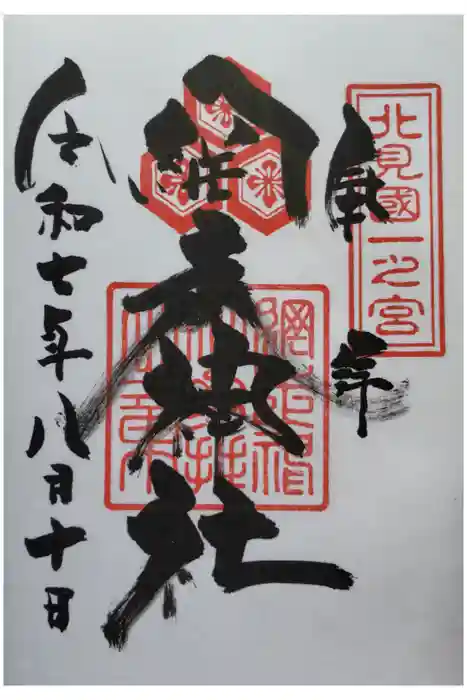 北見國一之宮
奉拝
網走神社
令和七年八月十日